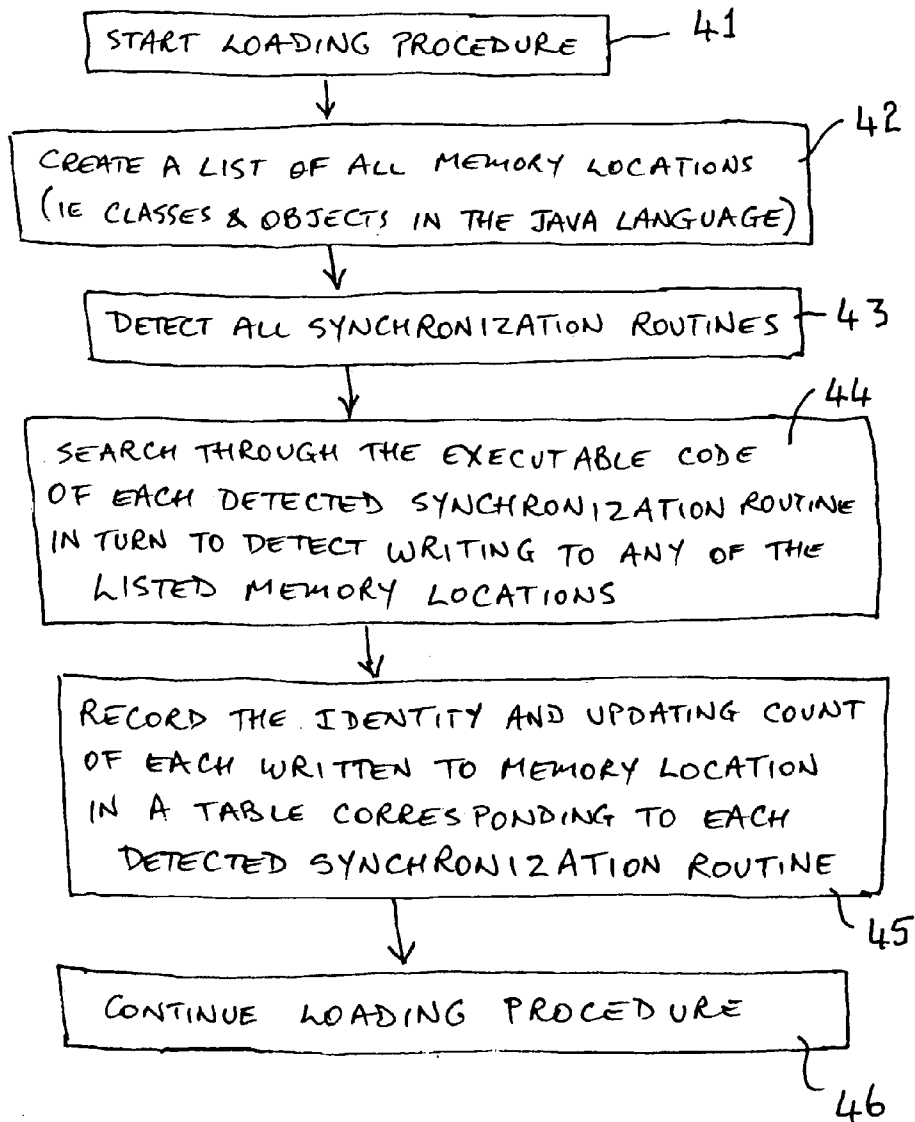 START LOADING PROCEDURE
41
42
CREATE A LIST OF ALL MEMORY LOCATIONS
(IE CLASSES & OBJECTS IN THE JAVA LANGUAGE)
DETECT ALL SYNCHRONIZATION ROUTINES
43
44
SEARCH THROUGH THE EXECUTABLE CODE
OF EACH DETECTED SYNCHRONIZATION ROUTINE
IN TURN TO DETECT WRITING TO ANY OF THE
LISTED MEMORY LOCATIONS
RECORD THE IDENTITY AND UPDATING COUNT
OF EACH WRITTEN TO MEMORY LOCATION
IN A TABLE CORRESPONDING TO EACH
DETECTED SYNCHRONIZATION ROUTINE
45
CONTINUE LOADING PROCEDURE
46